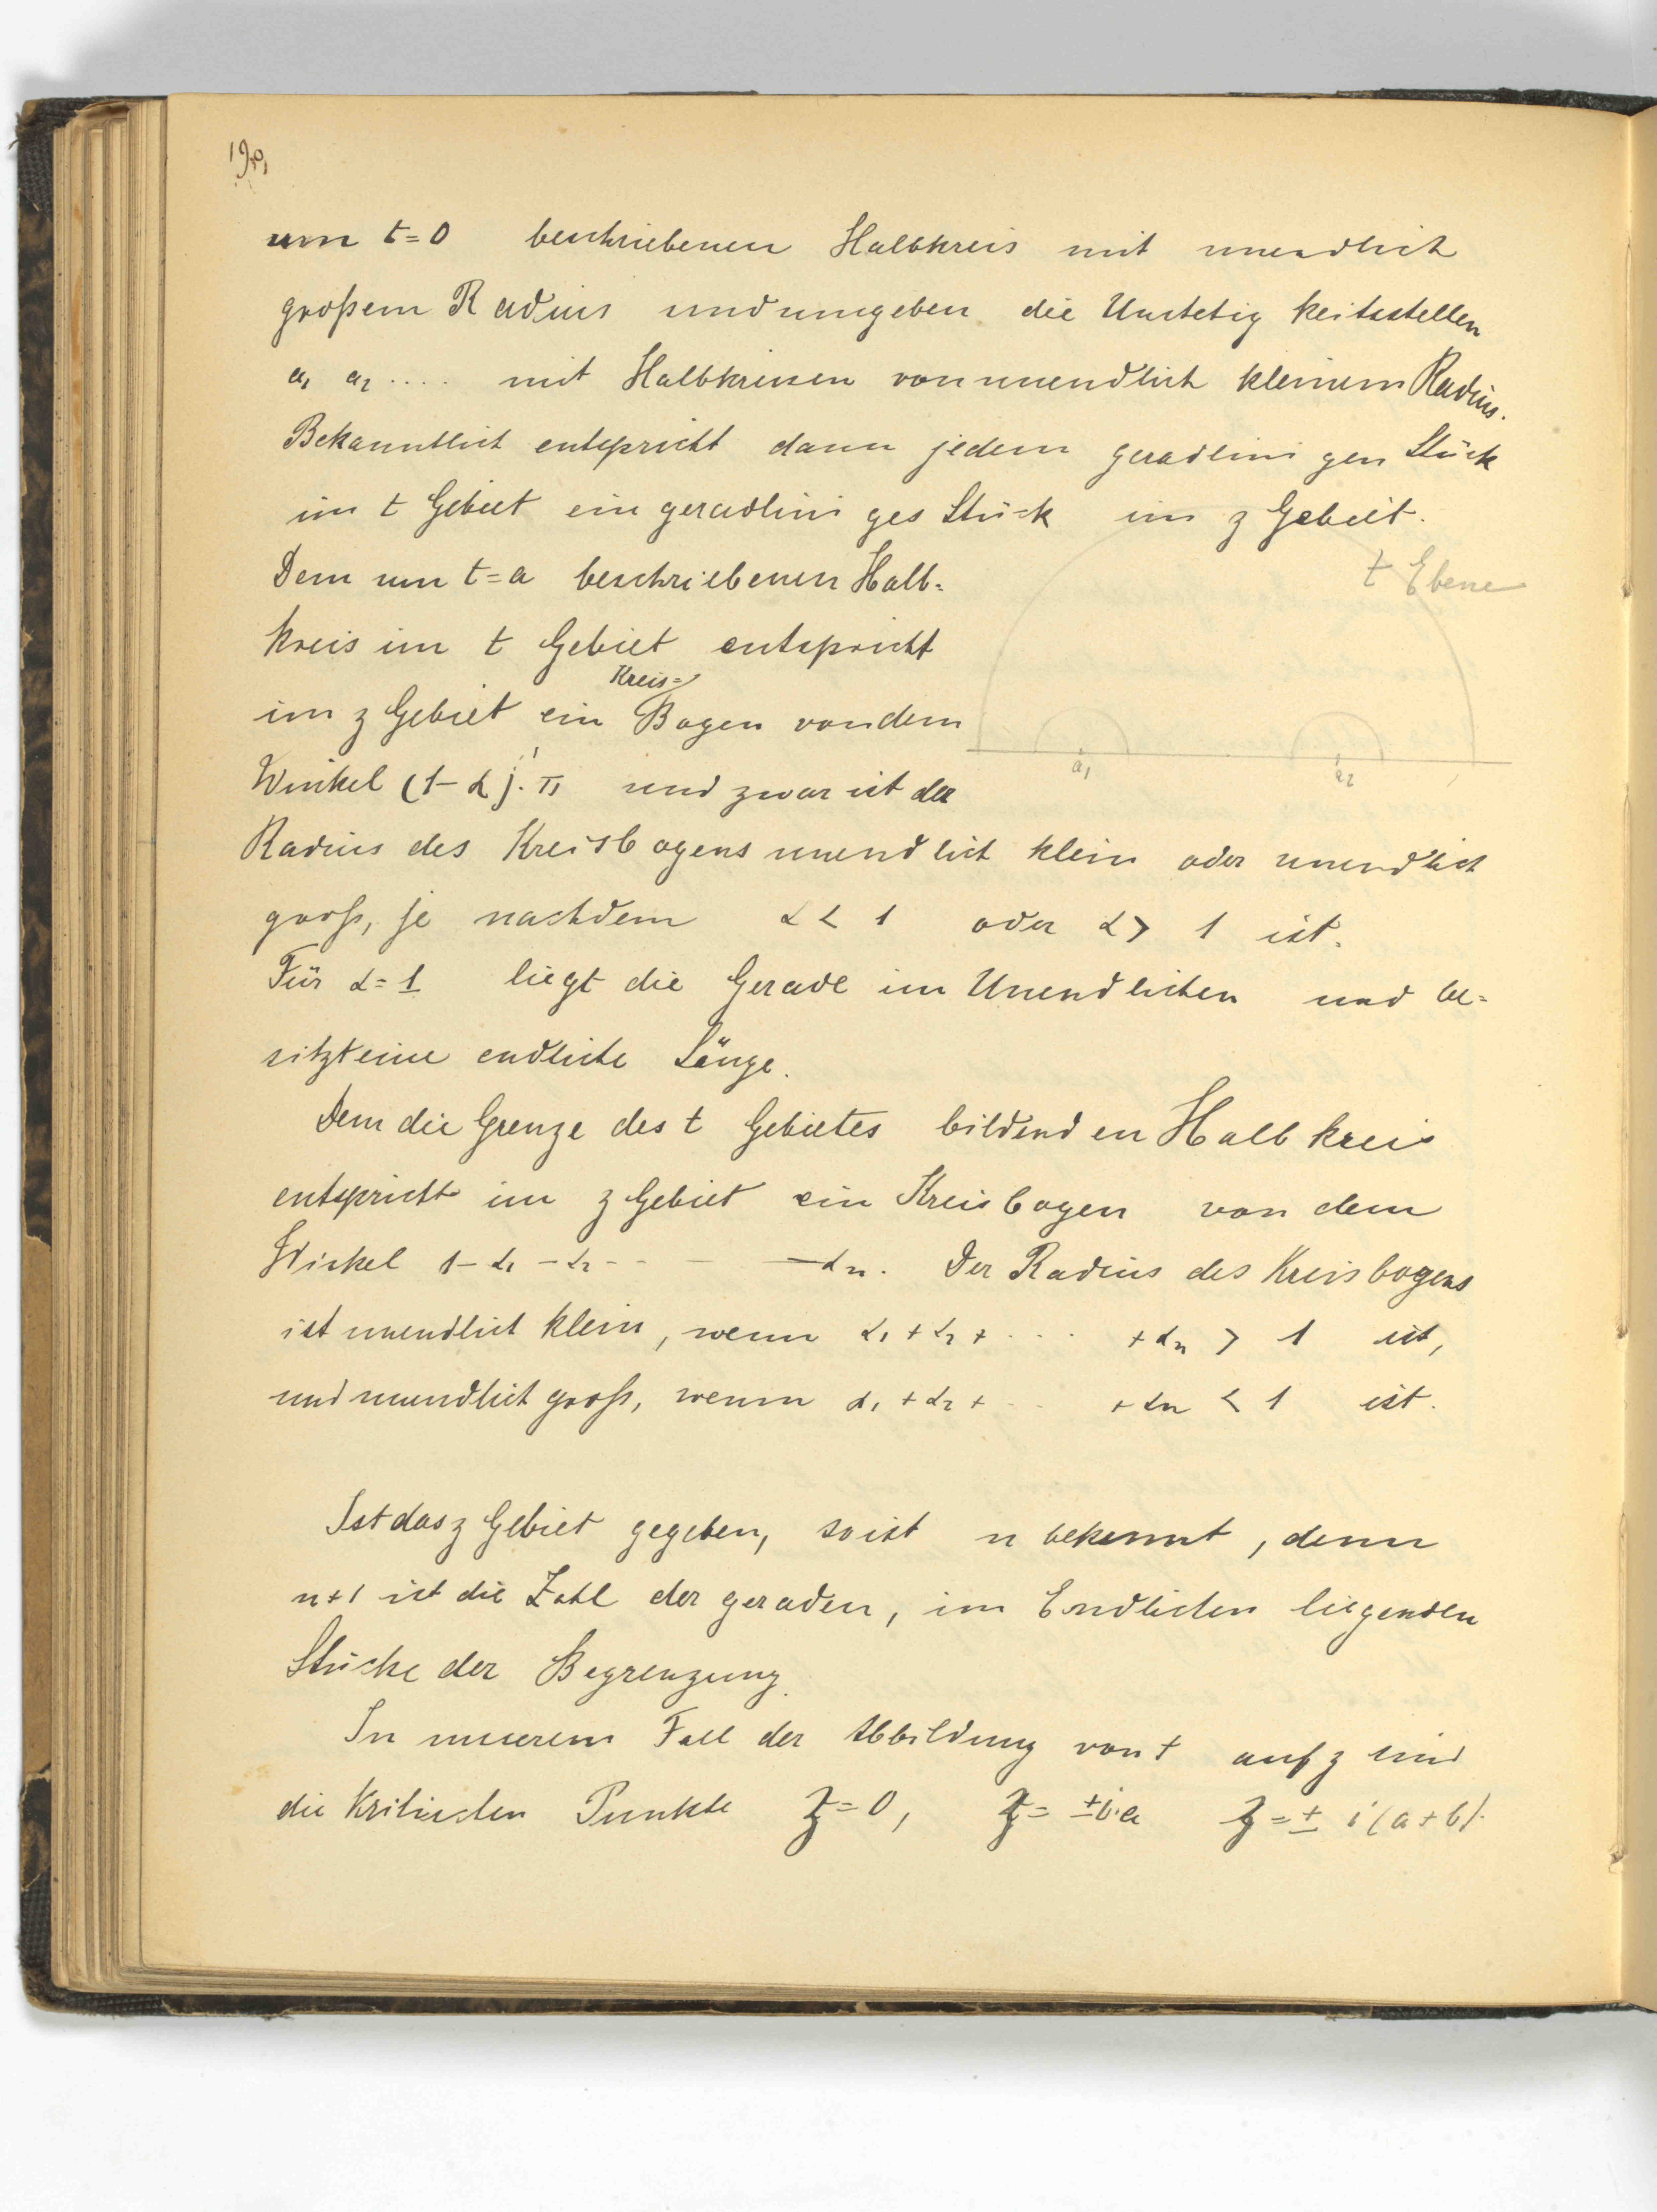 um t=0 beschriebenen Halbkreis mit unendlich
großem Radius und umgeben die Unstetigkeitsstellen
a₁ a₂ .... mit Halbkreisen von unendlich kleinem Radius.
Bekanntlich entspricht dann jedem geradlinigen Stück
im t Gebiet ein geradliniges Stück im z Gebiet.
t Ebene
Dem um t=a beschriebenen Halb=
kreis im t Gebiet entspricht
Kreis=
im z Gebiet ein Bogen von dem
a₁ a₂
Winkel (1-α).π und zwar ist der
Radius des Kreisbogens unendlich klein oder unendlich
groß, je nachdem α < 1 oder α > 1 ist.
Für α=1 liegt die Gerade im Unendlichen und be=
sitzt eine endliche Länge.
Dem die Grenze des t Gebietes bildenden Halbkreis
entspricht im z Gebiet ein Kreisbogen von dem
Winkel 1-α₁-α₂- - - -αn. Der Radius des Kreisbogens
ist unendlich klein, wenn α₁+α₂+ .... +αn > 1 ist,
und unendlich groß, wenn α₁+α₂+ .. +αn < 1 ist.
Ist das z Gebiet gegeben, so ist n bekannt, denn
n+1 ist die Zahl der geraden, im Endlichen liegenden
Stücke der Begrenzung.
In unserem Fall der Abbildung von t auf z sind
die kritischen Punkte z=0, z=±ia z=± i(a+b).